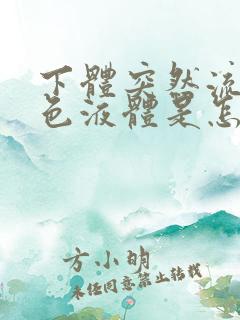 下體突然流
色液體是怎
方小明
未経同意禁止轉載